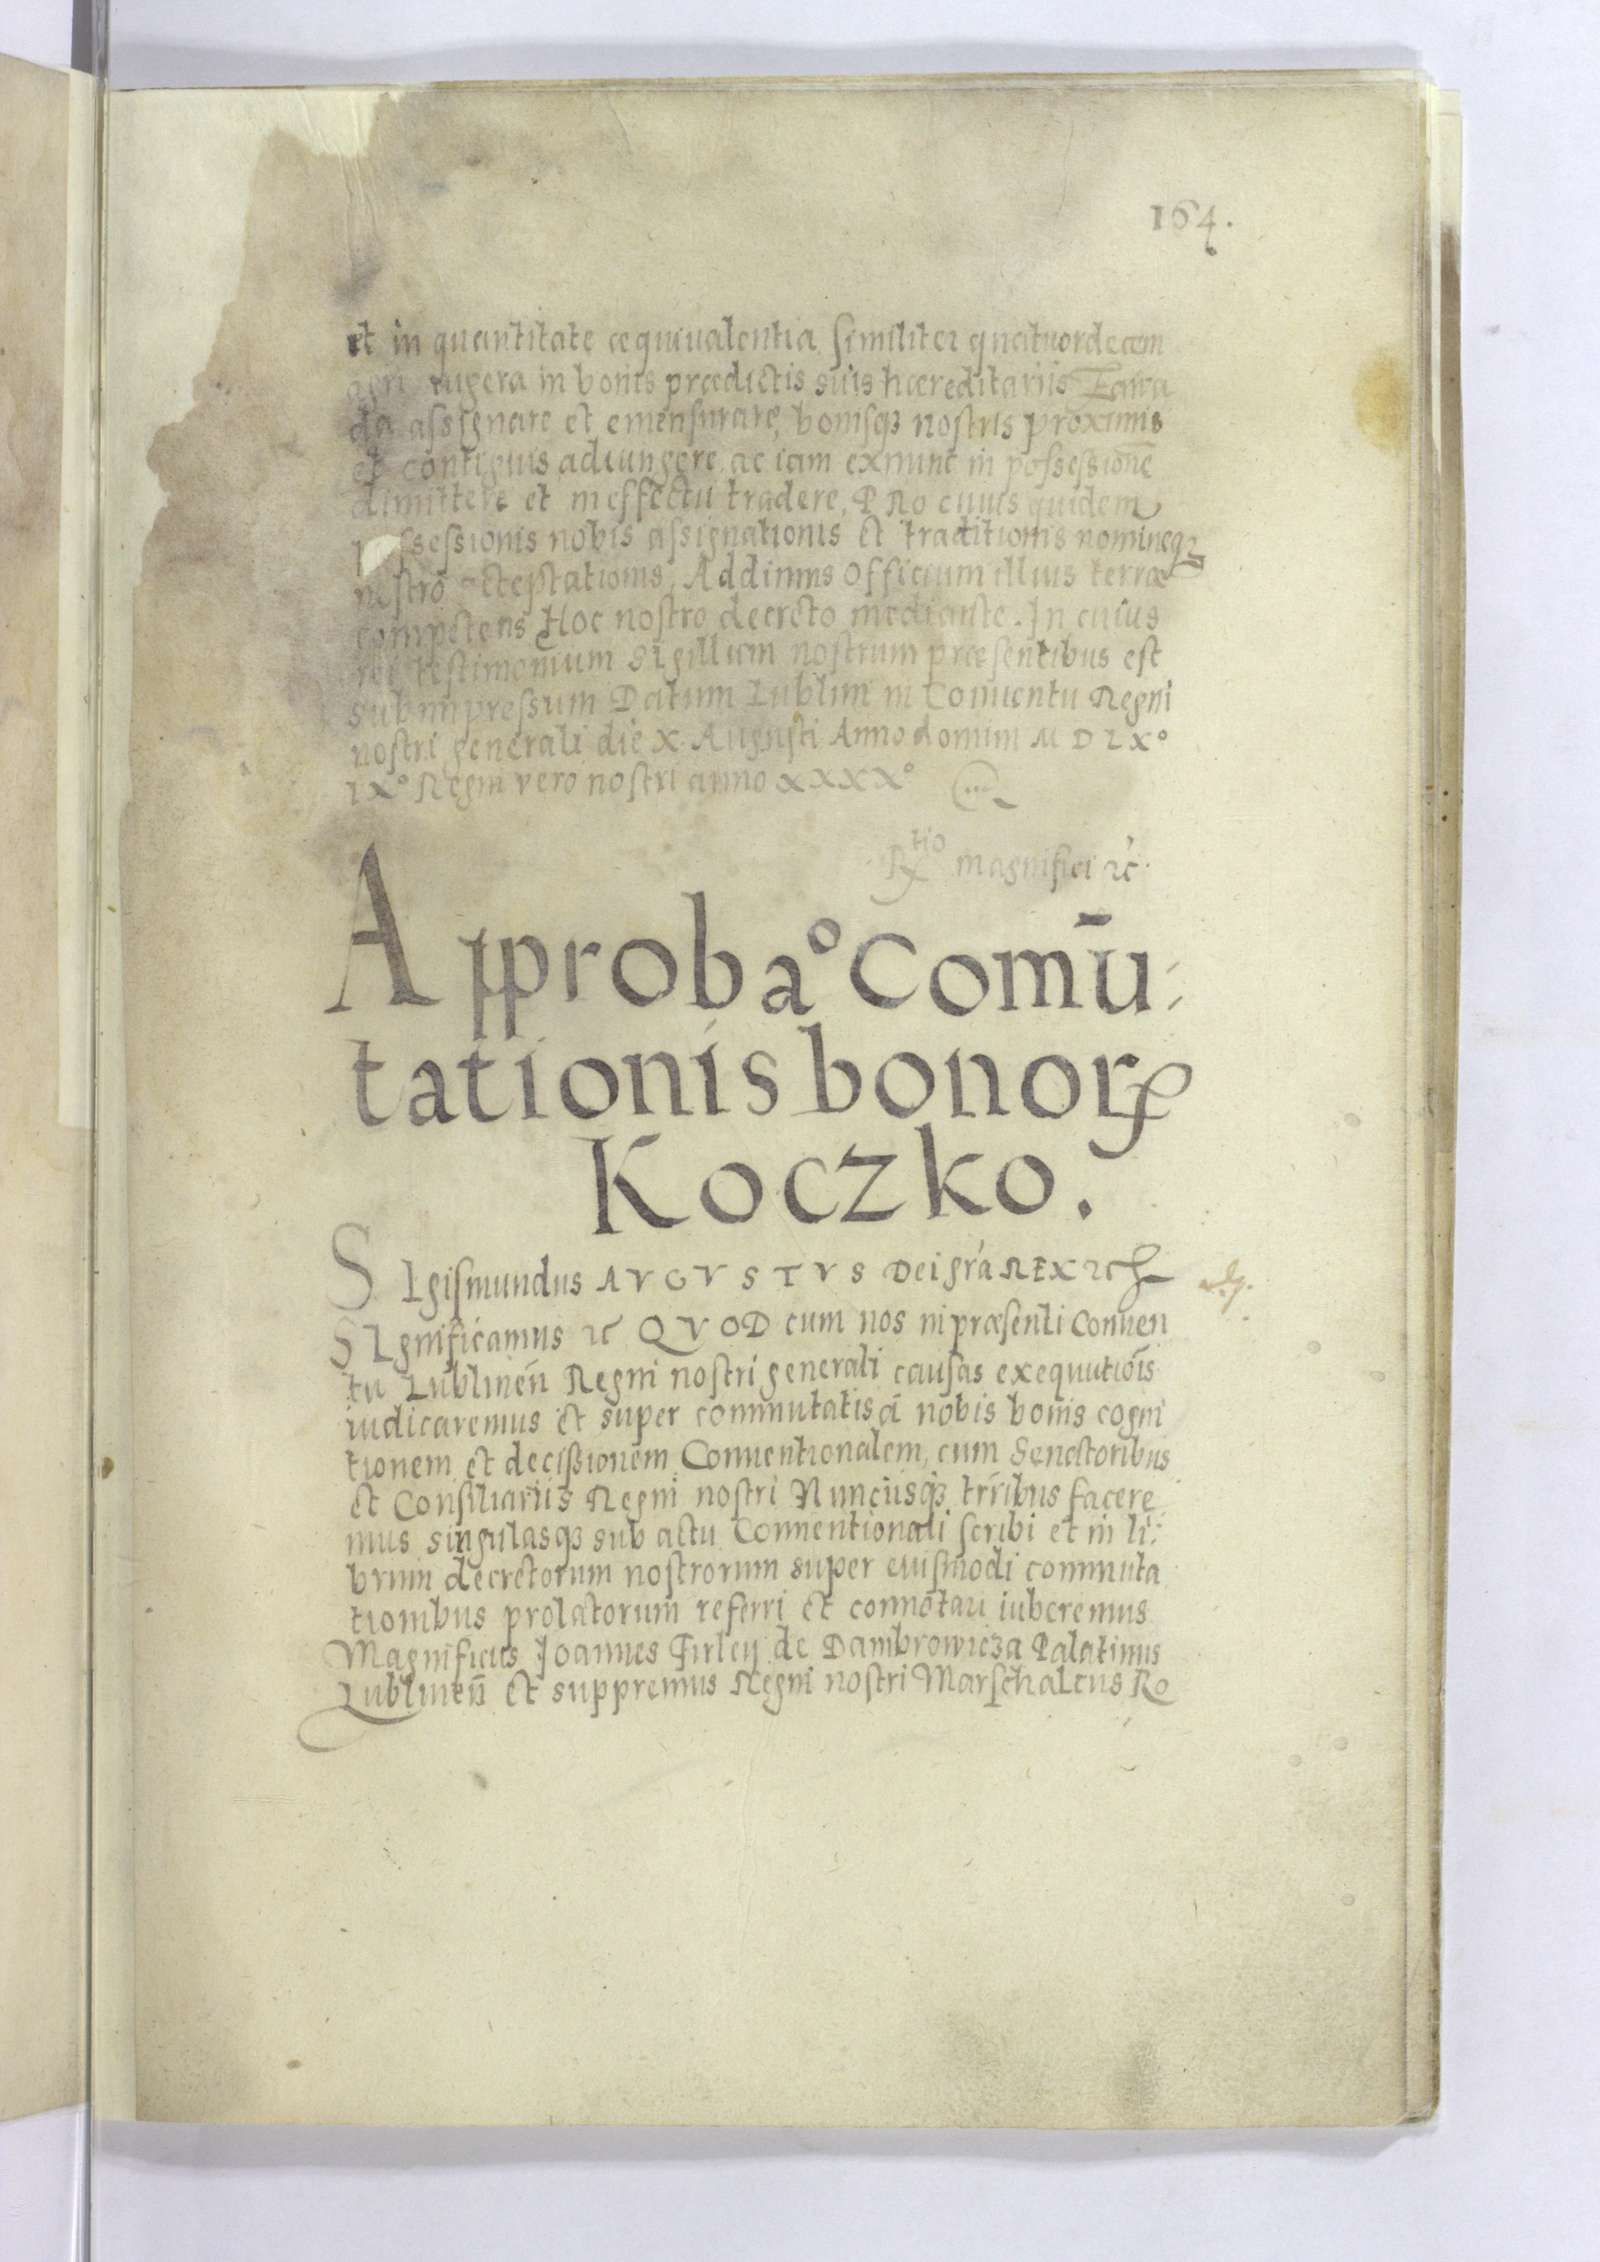 164.
et in quantitate æquiualentia similiter quatuordecem
agri iugera in bonis prædictis suis hæreditariis Zawa
da assignare et emensurare, bonisqȝ nostris proximis
et contiguis adiungere ac iam exnunc in possessionē
dimittere et in effectu tradere, PRo cuius quidem
possessionis nobis assignationis et traditionis nomineqȝ
nostro acceptationis, Addimus officium illius terræ
competens Hoc nostro decreto mediante. In cuius
rei testimonium Sigillum nostrum præsentibus est
subimpressum Datum Lublini in Conuentu Regni
nostri generali die X Augusti Anno domini MDLXº
IXº Regni vero nostri anno XXXXº
Rtio magnifici ꝛc.
Approbaº Comū:
tationis bonorꝝ
Koczko.
SIgismundus AVGVSTVS Dei gr̄a REX ꝛc
SIgnificamus ꝛc QVOD cum nos in præsenti Conuen
tu Lublineñ Regni nostri generali causas exequutiōis
iudicaremus et super commutatis à nobis bonis cogni
tionem et decisionem Conuentionalem, cum Senatoribus
et Consiliariis Regni nostri Nunciisqȝ tr̄ribus facere
mus singulasqȝ sub actu Conuentionali scribi et in li:
brum decretorum nostrorum super eiusmodi commuta
tionibus prolatorum referri et connotari iuberemus
Magnificus Joannes Firley de Dambrowicza Palatinus
Lublineñ et suppremus Regni nostri Marschalcus Ro